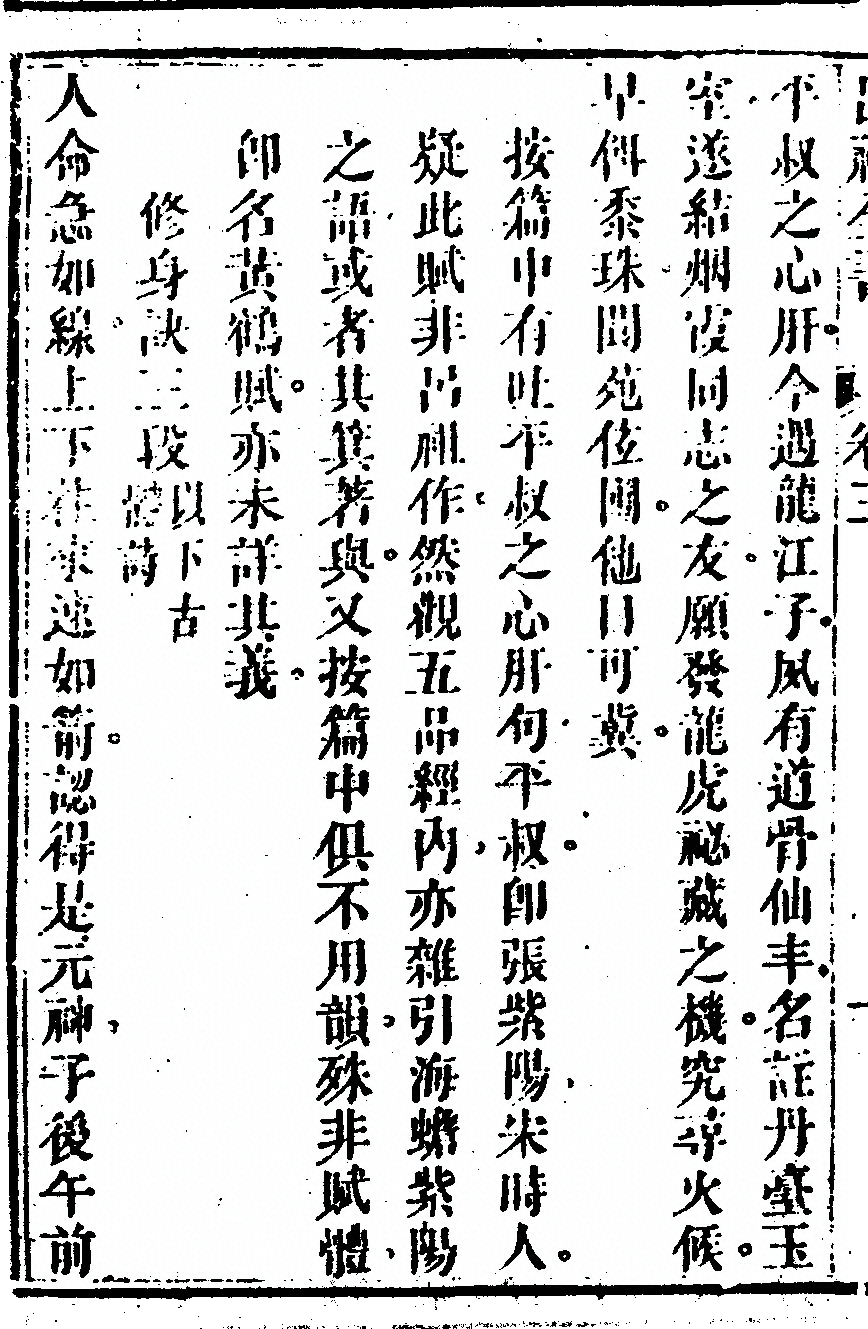 平叔之心肝今遇龍江子夙有道骨仙丰名註丹臺玉
室遂結烟霞同志之友願發龍虎祕藏之機究尋火候
早餌黍珠閬苑位團他日可冀
按篇中有吐平叔之心肝句平叔即張紫陽宋時人
疑此賦非呂祖作然觀五品經內亦雜引海蟾紫陽
之語或者其箕著與又按篇中俱不用韻殊非賦體
即名黃鶴賦亦未詳其義
修身訣三段
以下古
體詩
人命急如線上下往來速如箭認得是元神子後午前